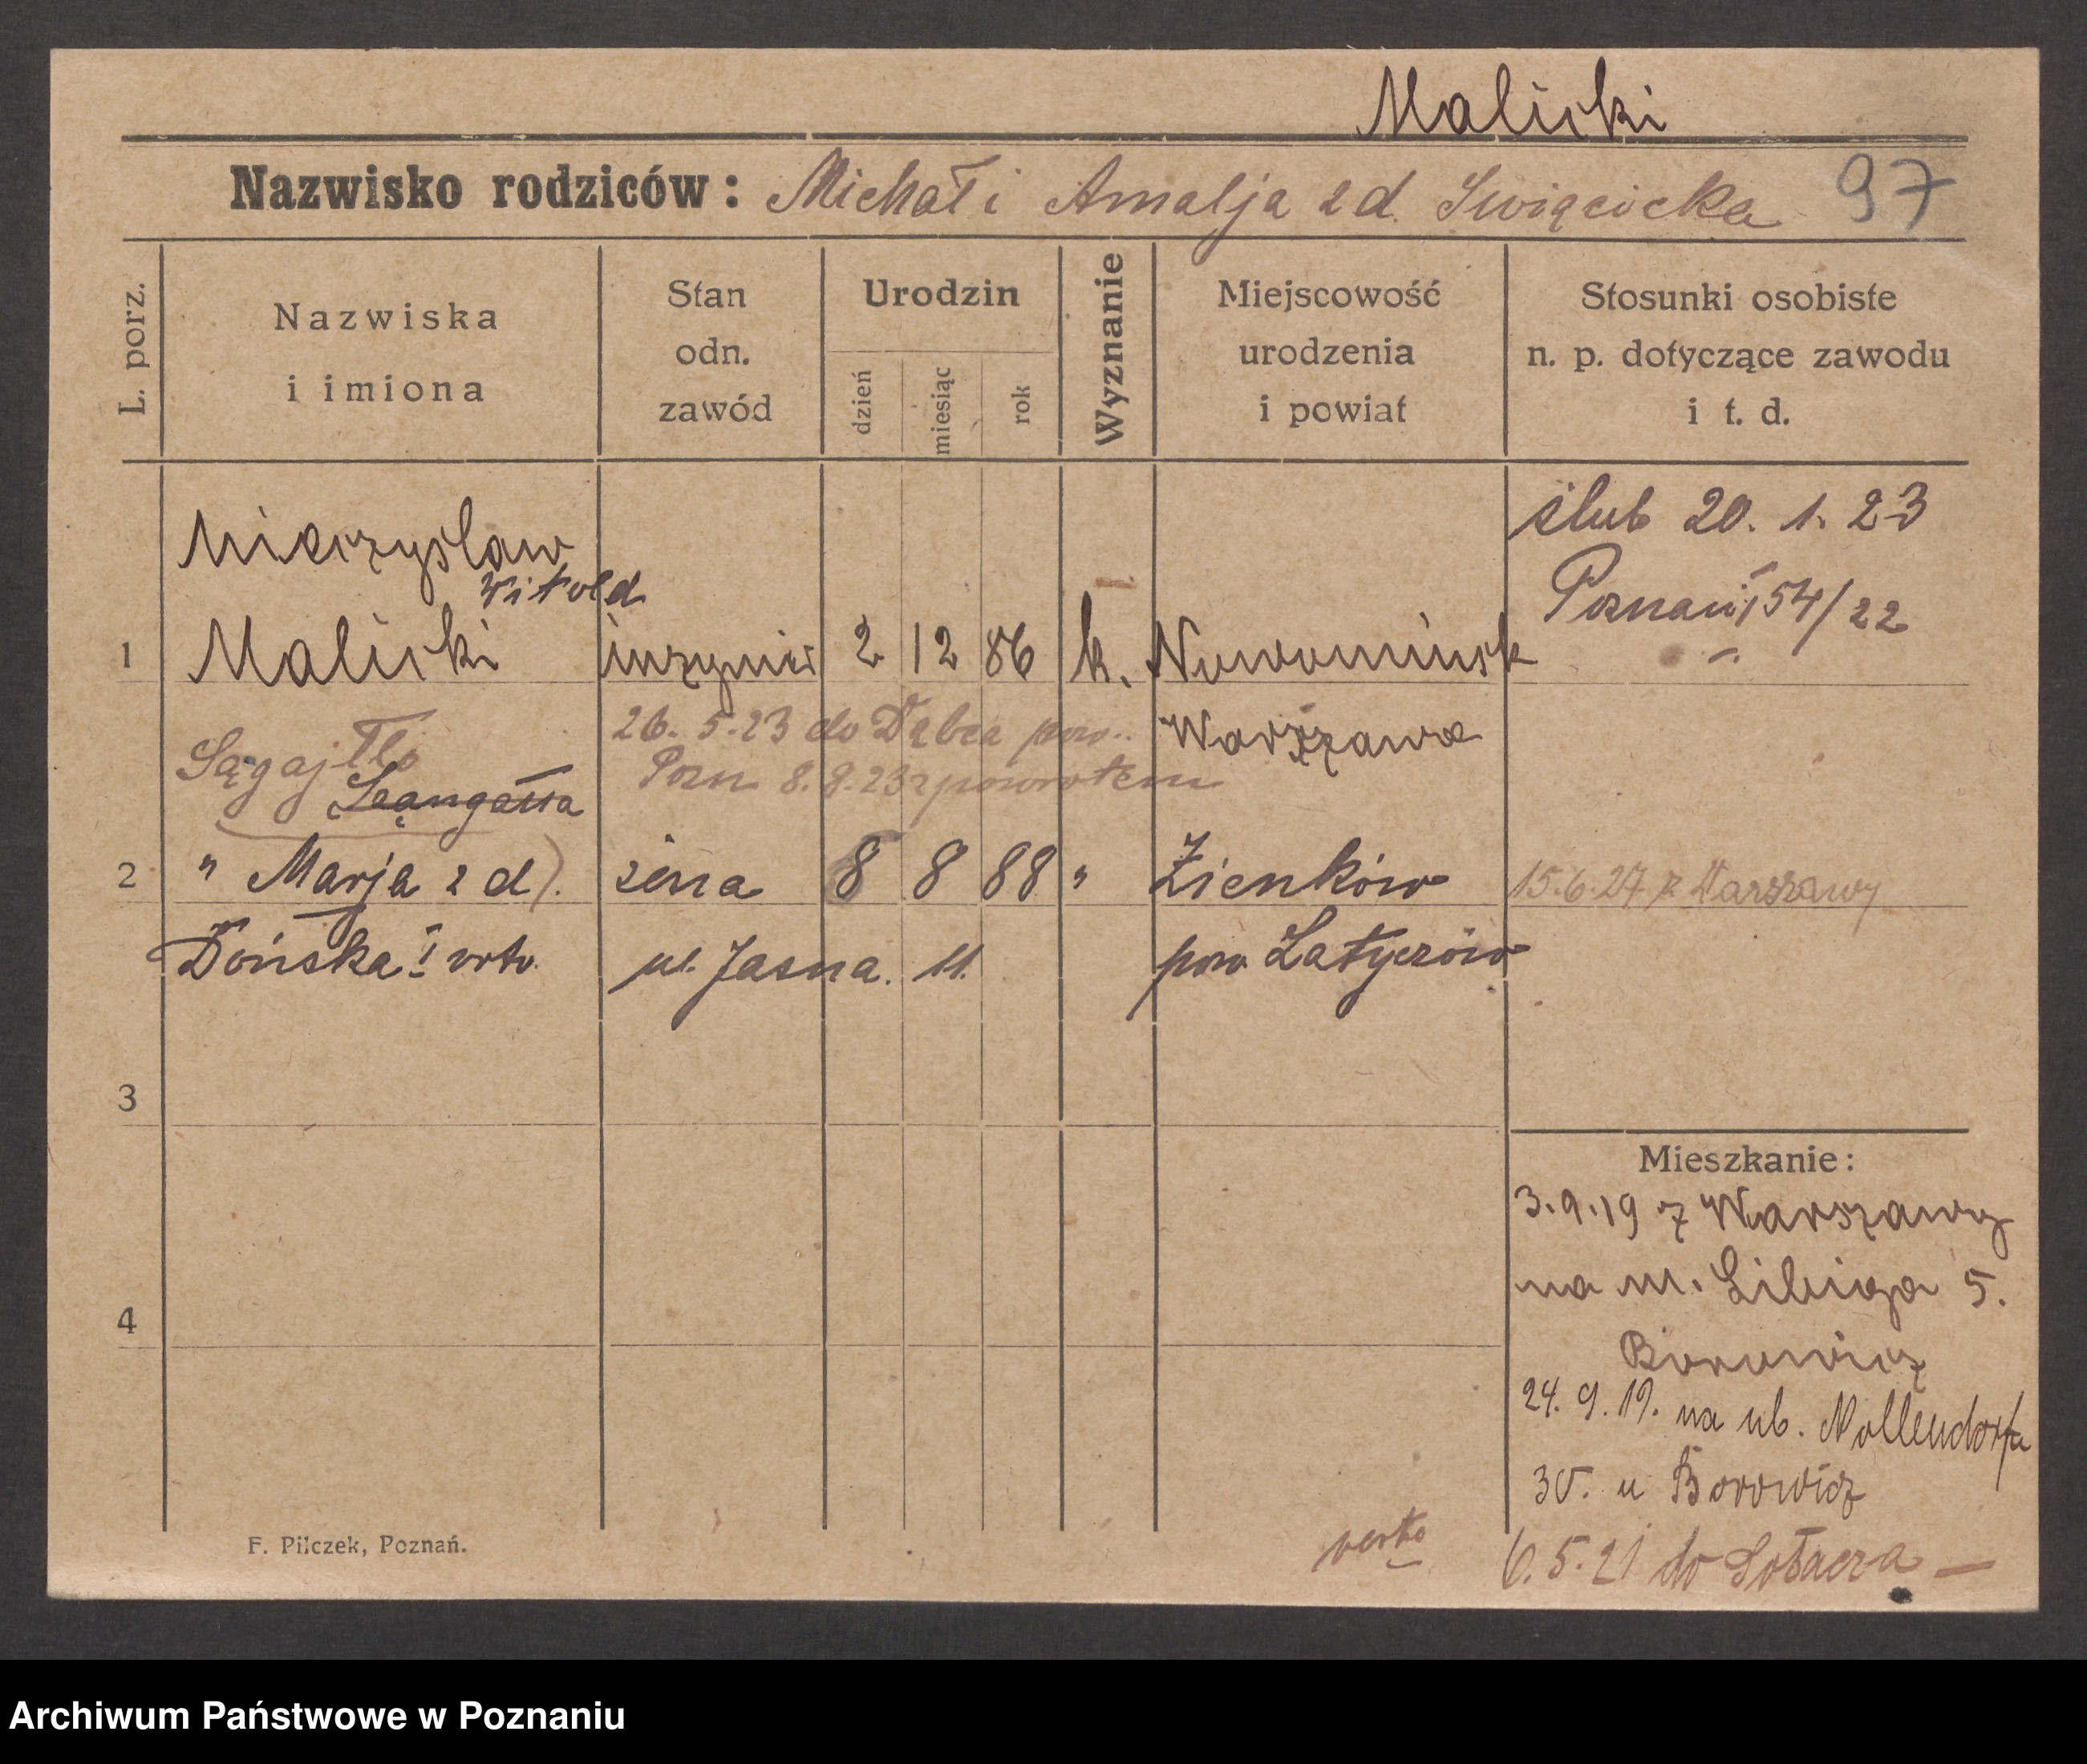 Malicki
Nazwisko rodziców: Michał i Amalja z d. Swięcicka 97
L. porz.
Nazwiska
i imiona
Stan
odn.
zawód
Urodzin
dzień
miesiąc
rok
Wyznanie
Miejscowość
urodzenia
i powiat
Stosunki osobiste
n. p. dotyczące zawodu
i t. d.
ślub 20. 1. 23
Poznań 154/22
Mieczysław
Witold
1 Malicki inżynier 2 12 86 k. Nowomińsk
Warszawa
26. 5. 23 do Dębca pow.
Pozn. 8. 8. 23 z powrotem
Sągajłło
2 " Marja z d). żona 8 8 88 " Zienków 15. 6. 27 z Warszawy
Dońska I voto. ul. Jasna. 11. pow Latyczów
3
4
Mieszkanie:
3. 9. 19 z Warszawy
na ul. Libiga 5.
Borowicz
24. 9. 19. na ul. Nollendorfa
30. u Borowicz
6. 5. 21 do Sołacza —
verte
F. Pilczek, Poznań.
Archiwum Państwowe w Poznaniu